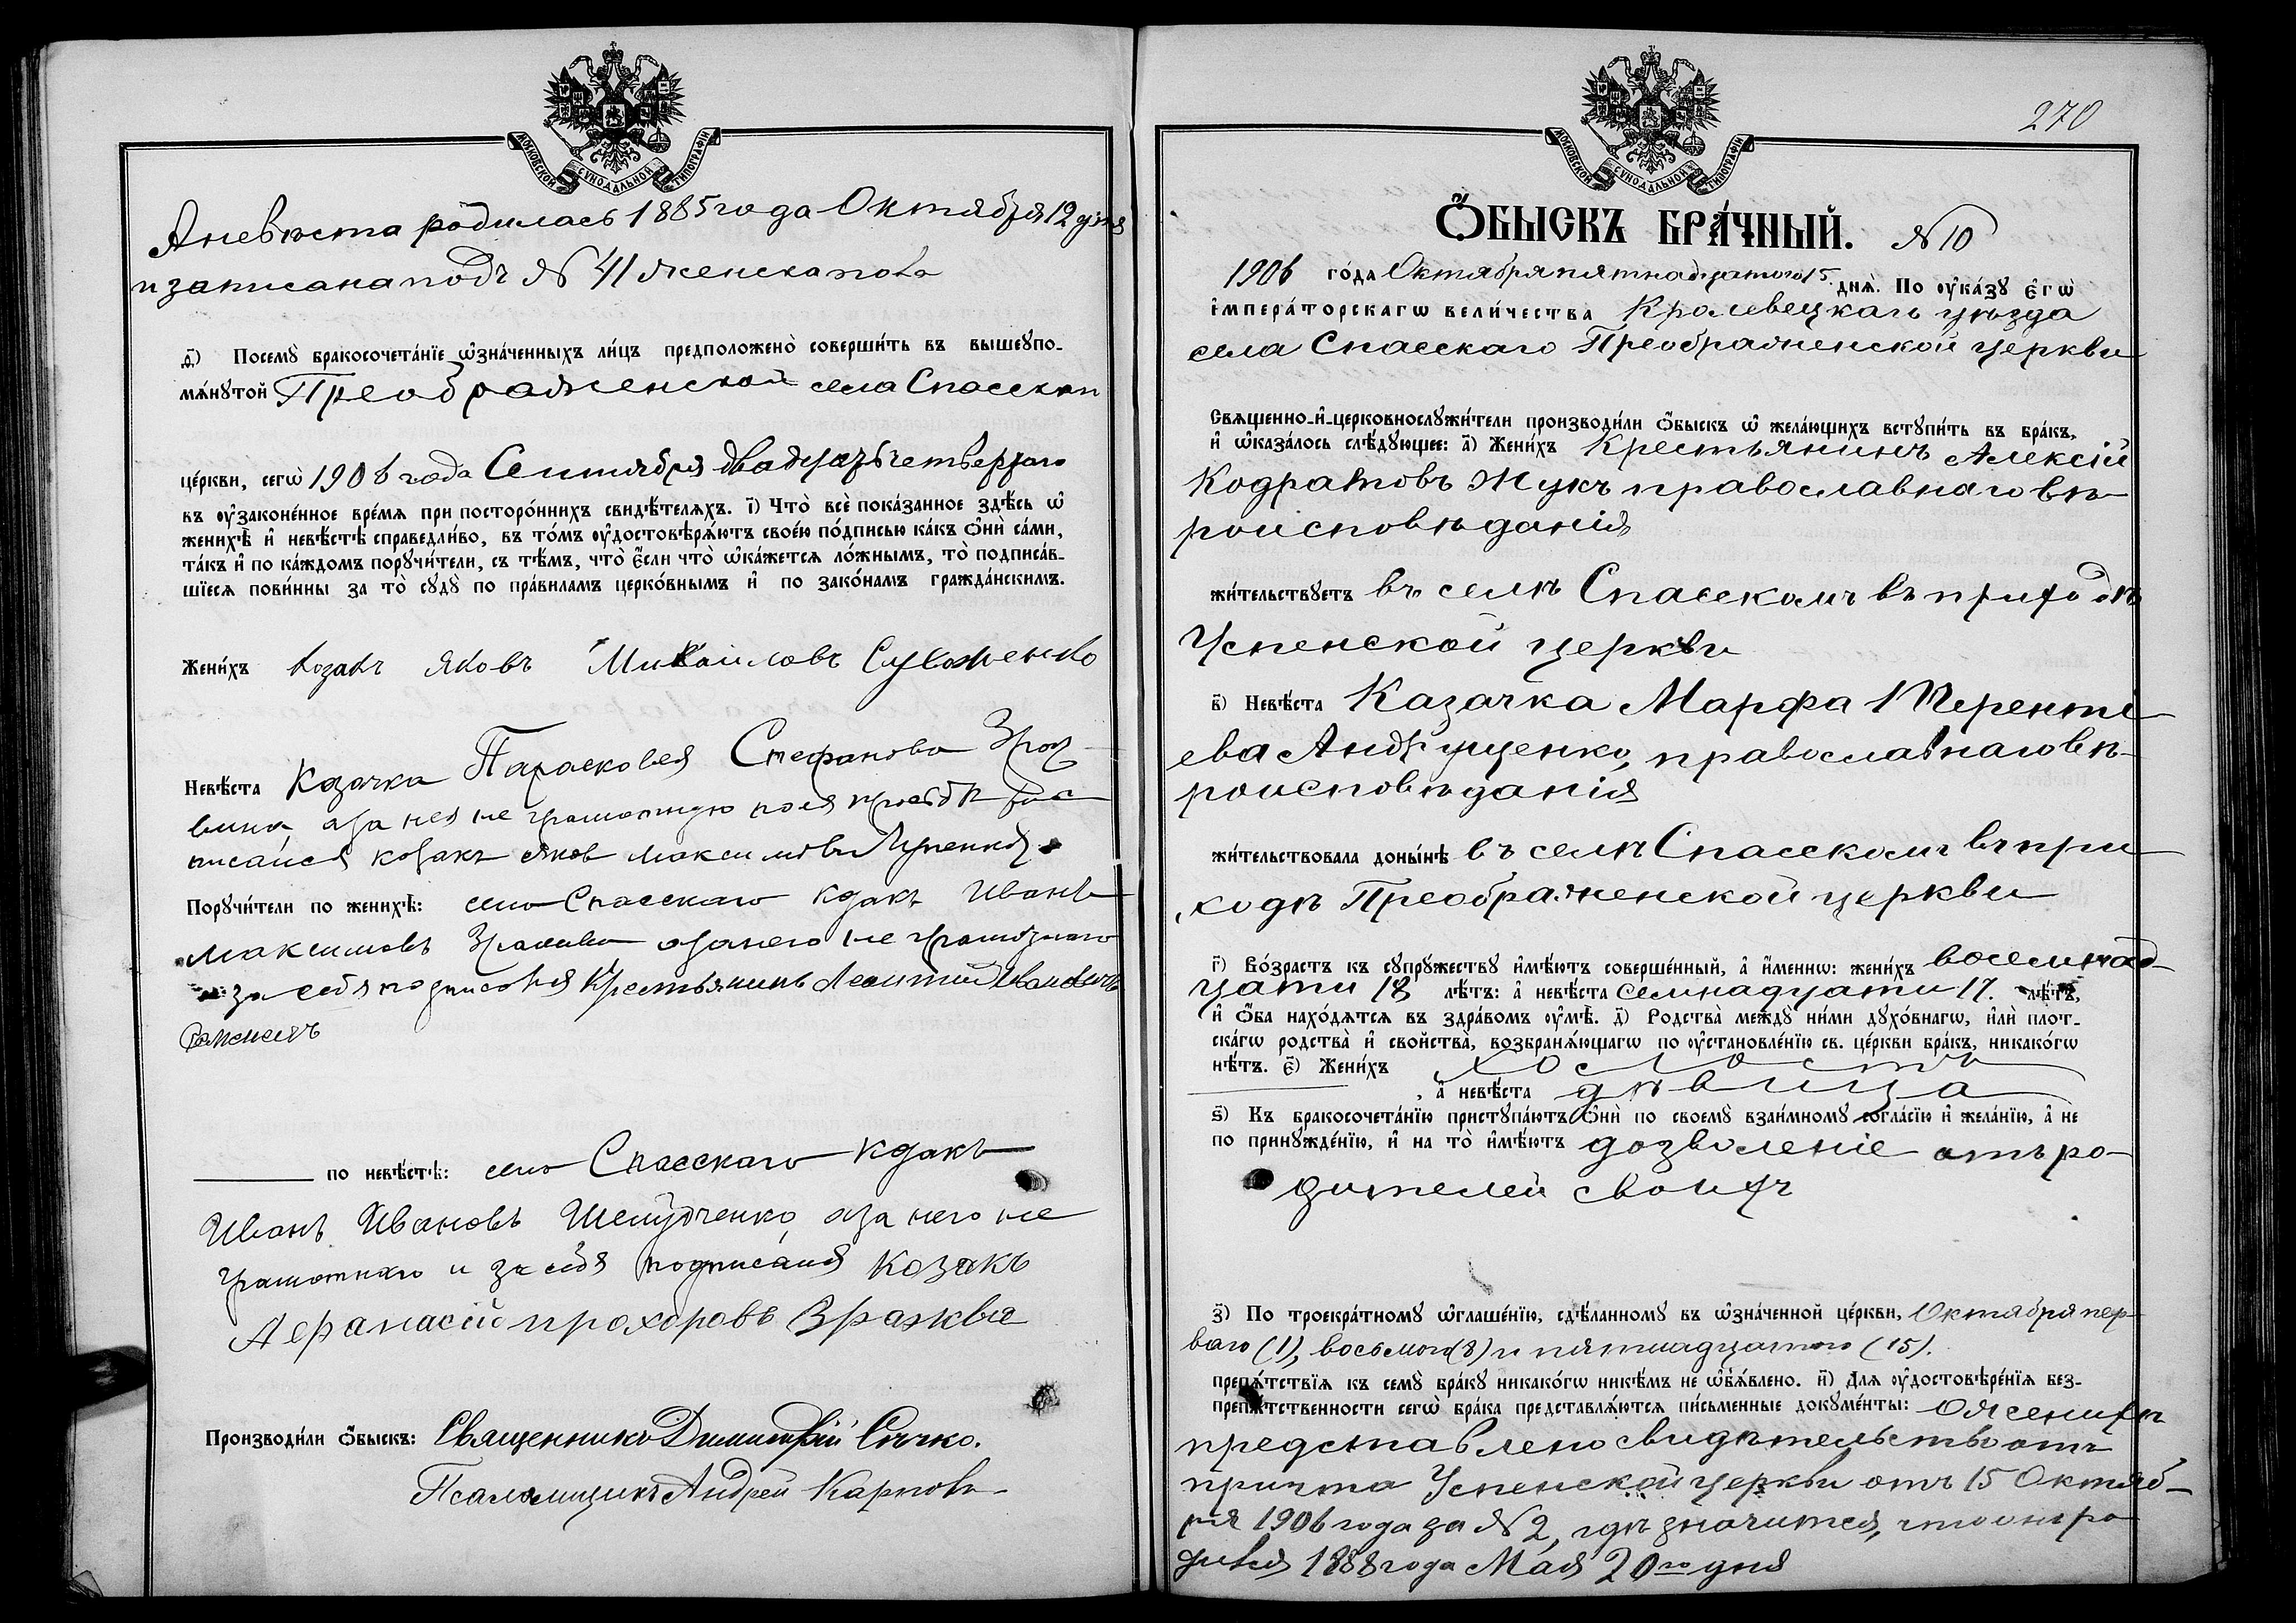 МОСКОВСКОЙ СѴНОДАЛЬНОЙ ТИПОГРАФІИ
А невѣста родилась 1885 года Октября 12 дня
и записана подъ № 41 женска пола
д҃) Посемꙋ бракосочета́нїе ѡ҆зна́ченныхъ ли́цъ предположено̀ соверши́ть въ вышеꙋпо-
мѧ́нꙋтой Преображенской села Спасскаго
це́ркви, сегѡ̀ 1906 года Сентября двадцать четвертаго
въ ᲂу҆законе́нное вре́мѧ при посторо́ннихъ свидѣ́телѧхъ. і҃) Что̀ всѐ пока́занное здѣ́сь ѡ҆
женихѣ̀ и҆ невѣ́стѣ справедли́во, въ то́мъ ᲂу҆достовѣрѧ́ютъ свое́ю по́дписью ка́къ ѻ҆нѝ са́ми,
та́къ и҆ по ка́ждомъ порꙋчи́тели, съ тѣ́мъ, что̀ є҆́сли что̀ ѡ҆ка́жетсѧ ло́жнымъ, то̀ подписа́в-
шїесѧ пови́нны за то̀ сꙋдꙋ̀ по пра́виламъ церко́внымъ и҆ по зако́намъ гражда́нскимъ.
Жени́хъ козакъ Яковъ Михаиловъ Суволенко
Невѣ́ста Козачка Парасковея Стефанова Зраж-
вина, а за нея не грамотную по ея прозбѣ рос
писался козакъ Яков Максимовъ
Порꙋчи́тели по женихѣ̀: села Спасскаго козакъ Иванъ
Максимовъ а за него не грамотнаго
за себя подписался Крестьянинъ Леонтий Ивановичъ
по невѣ́стѣ: села Спасскаго козакъ
Иванъ Ивановъ Шемудченко, а за него не
грамотнаго и за себя подписался козакъ
Аѳанасій Прохоровъ Вражкве
Производи́ли ѻ҆́быскъ: Священникъ Димитрій Сѣчко.
Псаломщикъ Андрей Карповъ
270
МОСКОВСКОЙ СѴНОДАЛЬНОЙ ТИПОГРАФІИ
Ѻ҆́БЫСКЪ БРА́ЧНЫЙ. № 10
1906 го́да Октября пятнадцатаго 15 днѧ̀. По ᲂу҆ка́зꙋ є҆гѡ̀
і҆мпера́торскагѡ вели́чества Кролевецкаго уѣзда
села Спасскаго Преображенской церкви
Свѧщенно-и҆-церковнослꙋжи́тели производи́ли ѻ҆́быскъ ѡ҆ жела́ющихъ встꙋпи́ть въ бра́къ,
и҆ ѡ҆каза́лось слѣ́дꙋющее: а҃) Жени́хъ Крестьянинъ Алексій
Кодратовъ Жукъ православнаго вѣ-
роисповѣданія
жи́тельствꙋетъ въ селѣ Спасскомъ въ приходѣ
Успенской церкви
в҃) Невѣ́ста Казачка Марфа Терентi
ева Андрущенко, православнаго вѣ-
роисповѣданія
жи́тельствовала доны́нѣ въ селѣ Спасскомъ въ при
ходѣ Преображенской церкви
г҃) Во́зрастъ къ сꙋпрꙋ́жествꙋ и҆мѣ́ютъ соверше́нный, а҆ и҆́меннѡ: жени́хъ восемнад-
цати 18 лѣ́тъ: а҆ невѣ́ста семнадцати 17. лѣ́тъ,
и҆ ѻ҆́ба нахо́дѧтсѧ въ здра́вомъ ᲂу҆мѣ̀. д҃) Родства̀ междꙋ̀ ни́ми дꙋхо́внагѡ, и҆лѝ плот-
ска́гѡ родства̀ и҆ сво́йства̀, возбранѧ́ющагѡ по ᲂу҆становле́нїю св. це́ркви бра́къ, никако́гѡ
нѣ́тъ. є҃) Жени́хъ холостъ
, а҆ невѣ́ста дѣвица
ѕ҃) Къ бракосочета́нїю пристꙋпа́ютъ ѻ҆нѝ по своемꙋ̀ взаи́мномꙋ согла́сїю и҆ жела́нїю, а҆ не
по принꙋжде́нїю, и҆ на то̀ и҆мѣ́ютъ дозволеніе отъ ро-
дителей своихъ
з҃) По троекра́тномꙋ ѡ҆глаше́нїю, сдѣ́ланномꙋ въ ѡ҆зна́ченной це́ркви, Октября пер-
ваго (1), восьмого (8) и пятнадцатаго (15).
препѧ́тствїѧ къ семꙋ̀ бра́кꙋ никако́гѡ никѣ́мъ не ѡ҆б̾ѧ́влено. и҃) Длѧ ᲂу҆достовѣре́нїѧ без-
препѧ́тственности сегѡ̀ бра́ка представлѧ́ютсѧ пи́сьменные докꙋме́нты: О женихѣ
представлено свидѣтельство отъ
причта Успенской церкви отъ 15 Октяб-
ря 1906 года за № 2, гдѣ значится, что онъ ро
дился 1888 года Мая 20го дня